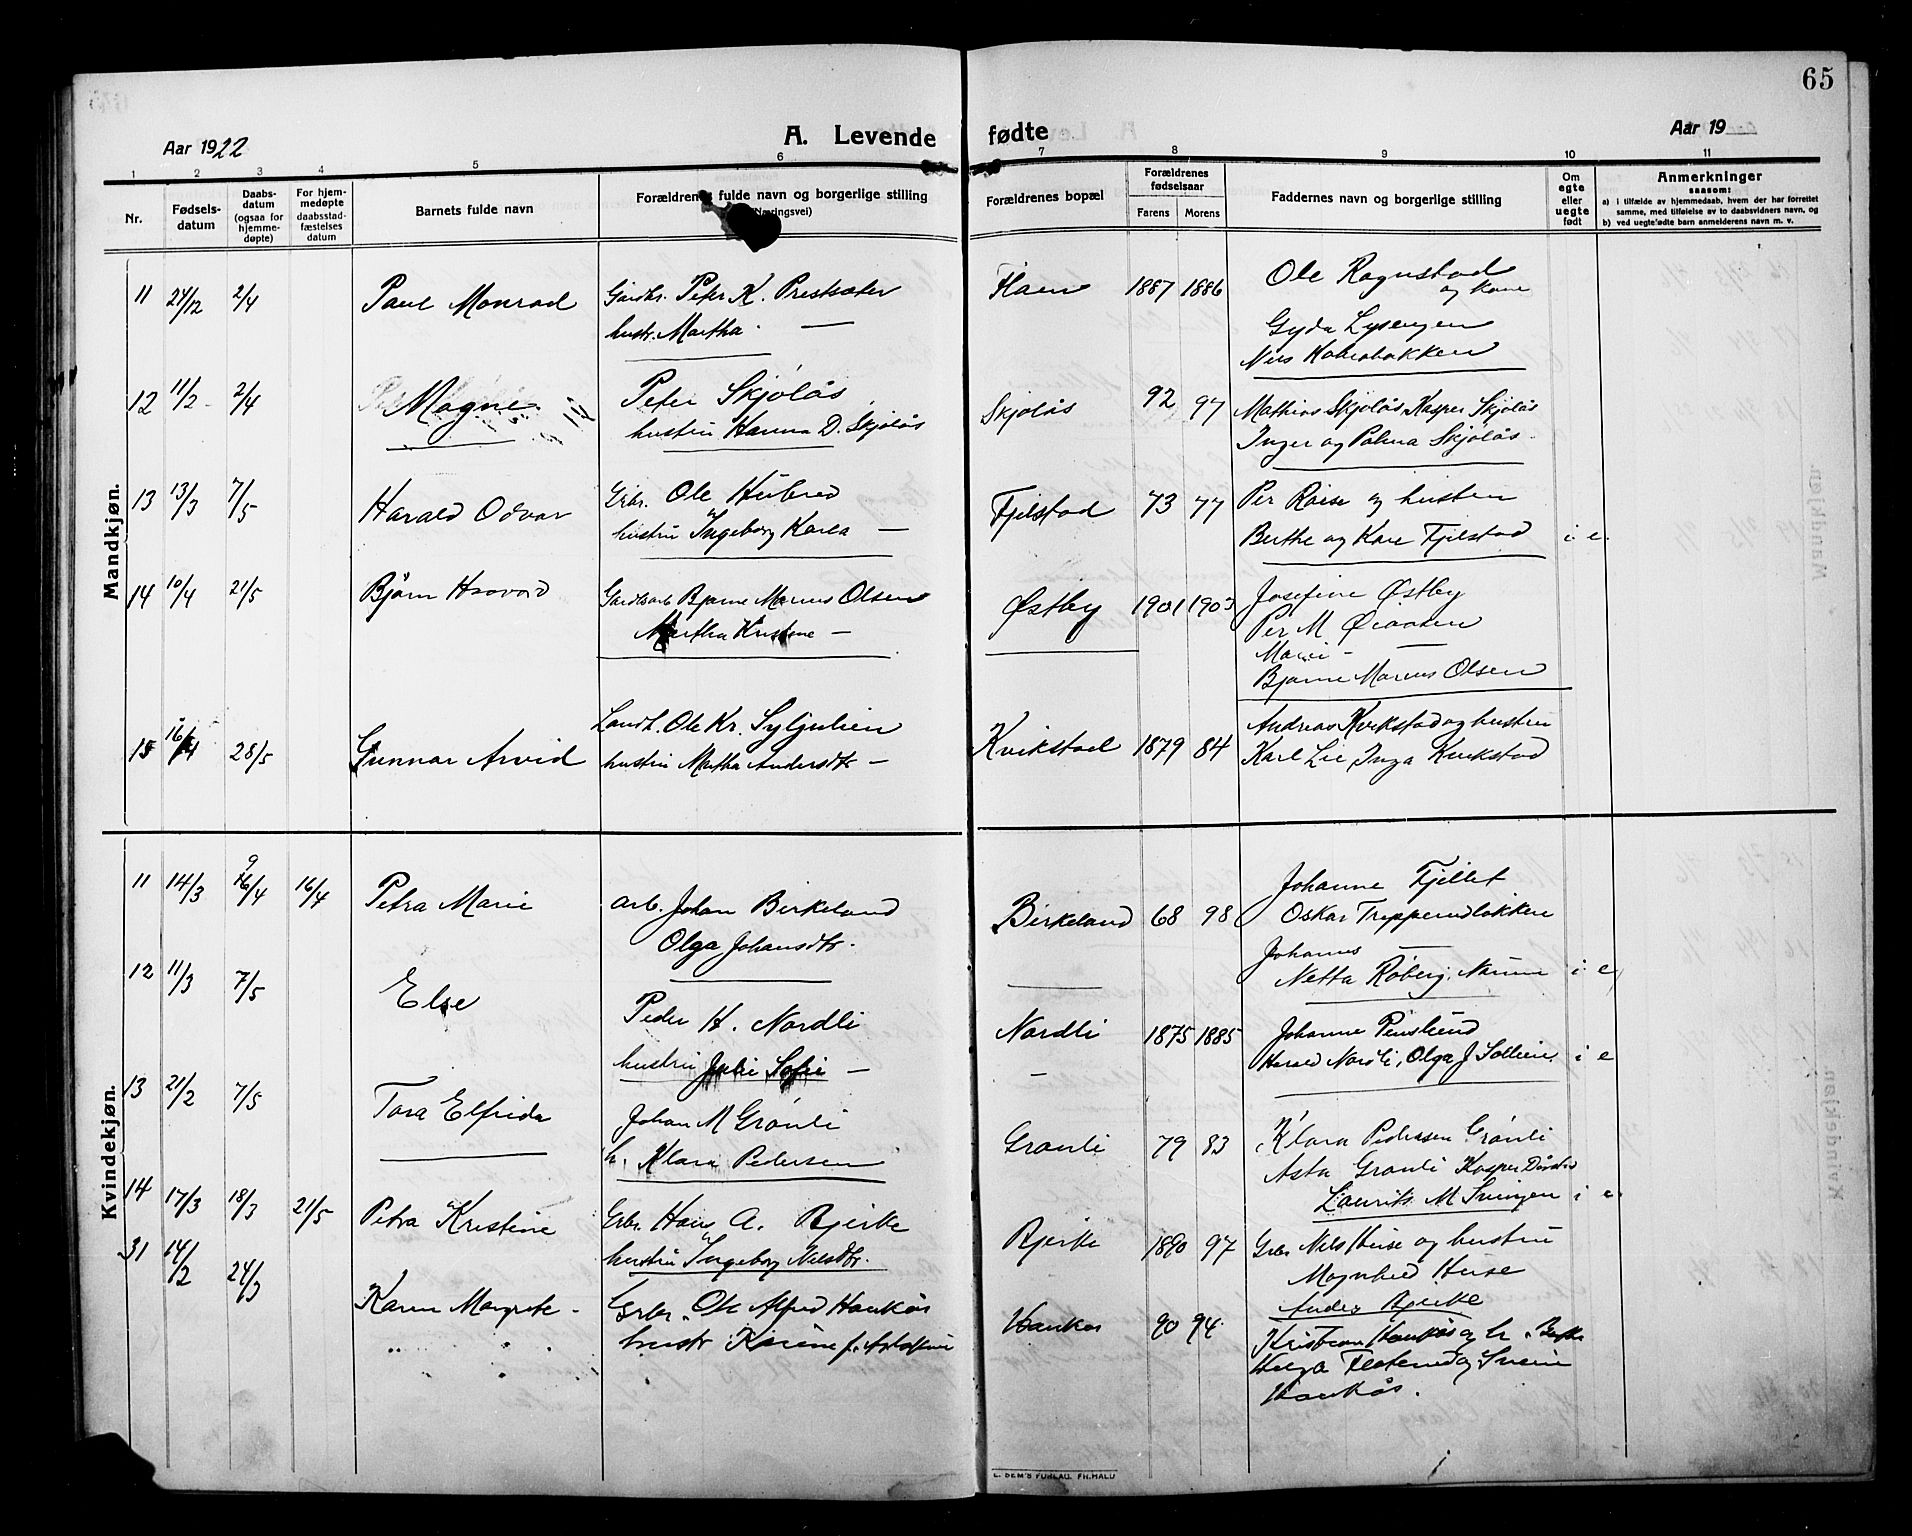 65
Aar 1922
A. Levende fødte
Aar 19
1 2 3 4 5 6 7 8 9 10 11
Nr.
Fødsels-datum
Daabs-datum (ogsaa for hjemme-døpte)
For hjem-medøpte daabsstad-fæstelses datum
Barnets fulde navn
Forældrenes fulde navn og borgerlige stilling (Næringsvei)
Forældrenes bopæl
Forældrenes fødselsaar
Farens Morens
Faddernes navn og borgerlige stilling
Om egte eller uegte født
Anmerkninger
saasom:
a) i tilfælde av hjemmedaab, hvem der har forrettet samme, med tilføielse av to daabsvidners navn, og
b) ved uegtefødte barn anmelderens navn m. v.
Mandkjøn.
11 27/12 2/4 Paul Monrad Gardbr. Peter K. Prestsæter
hustr. Martha — 1887 1886 Ole Rognstad
og kone
Gyda Lysengen
Nils
12 11/2 2/4 Magne Peter Skjolås
hustru Hanna D. Skjolås
Skjolås 92 97 Mathias Skjolås Kasper Skjolås
Inger og Palma Skjolås.
13 13/3 7/5 Harald Odvar Grbr. Ole Hubred
hustru Ingeborg Karea —
Fjelstad 73 77 Per Røise og hustru
Berthe og Kare Fjelstad i e.
14 10/4 21/5 Bjørn Havard Gardsarb Bjarne Marius Olsen
Martha Kristine —
Østby 1901 1903 Josefine Østby
Per M
Marie —
Bjarne Marius Olsen
15 16/4 28/5 Gunnar Arvid Landh. Ole Kr. Syljulien
hustru Martha Andersdtr —
Kvikstad 1879 84 Andreas Kvikstad og hustru
Karl Lie, Inga Kvikstad
Kvindekjøn.
11 14/3 9/4 16/4 Petra Marie arb. Johan Birkeland
Olga Johansdtr.
Birkeland 68 98 Johanne Fjellet
Oskar Treppendlokken
Johannes —
Netta Røberg, i e
12 11/3 7/5 Else Peder H. Nordli
hustru Julie Sofie —
Nordli 1875 1885 Johanne
Harald Nordli, Olga J Sollien i e
13 21/2 7/5 Tora Elfrida Johan M Grønli
h. Klara Pedersen
Grønli 79 83 Klara Pedersen Grønli
Asta Grønli Kasper
Laurits M Svingen i e
14 17/3 18/3 21/5 Petra Kristine Grbr. Hans A. Bjerke
hustru Ingeborg Nilsdtr.
Bjerke 1890 97 Grbr Nils Huse og hustru
Magnhild Huse
Anders Bjerke
31 14/2 24/3 Karen Margrete - Grbr. Ole Alfred Haukås
hustr
Haukås 90 94 Kristian Haukås og h.
Helga og Svein
Haukås.
E. SEM'S FORLAG. FR.HALD